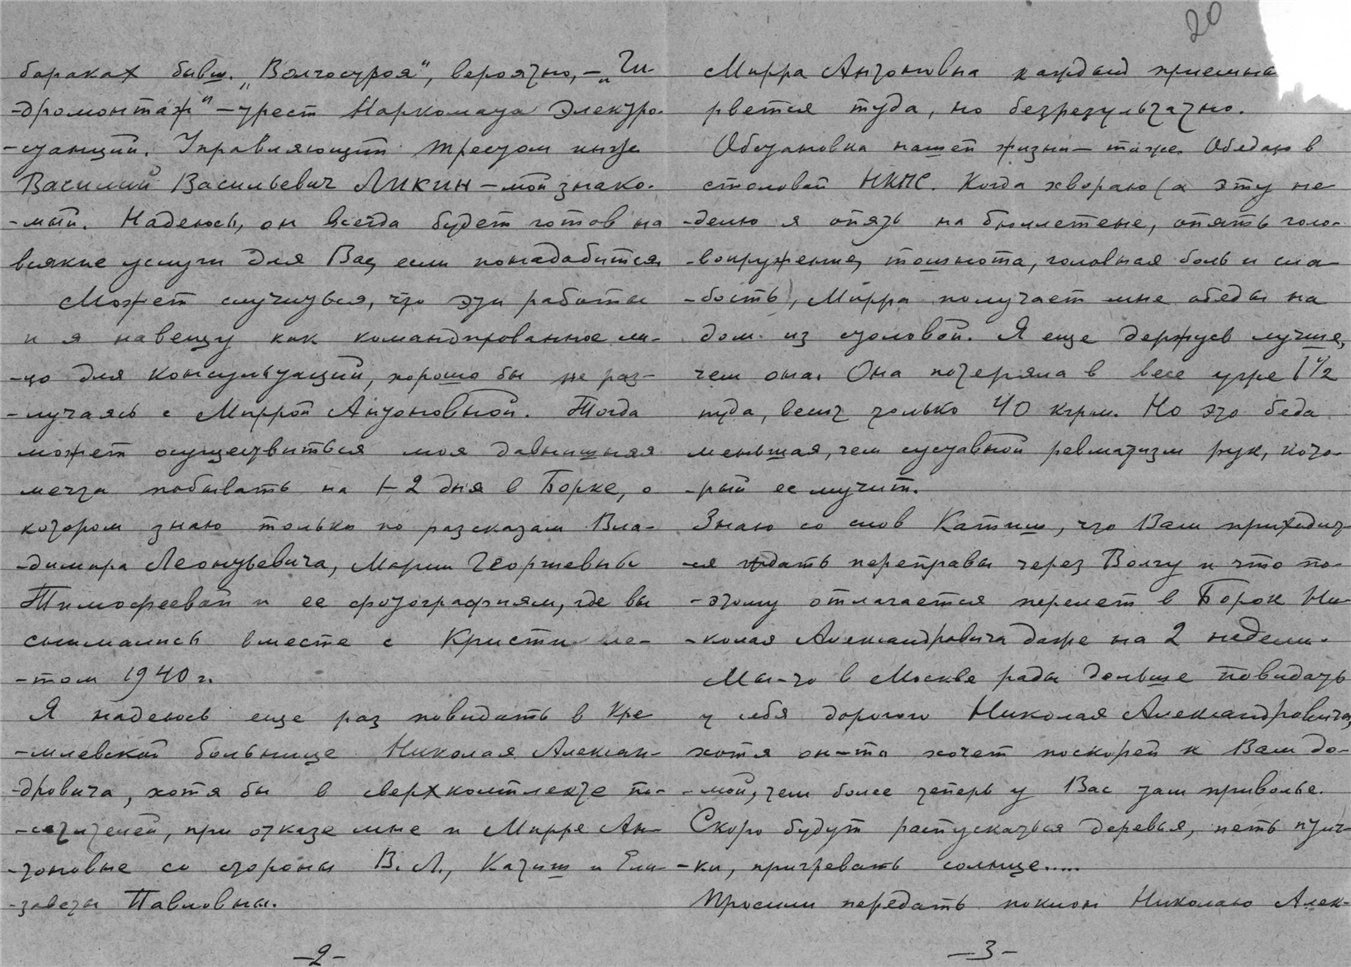 20
бараках бывш. „Волгостроя", вероятно, – „Ги-
-дромонтаж" – трест Наркомата Электро-
-станций. Управляющий трестом инж
Василий Васильевич ЛИКИН – мой знако-
-мый. Надеюсь, он всегда будет готов на
всякие услуги для Вас, если понадобится.
Может случиться, что эти работы
и я навещу как командированное ли-
-цо для консультаций, хорошо бы не раз-
-лучаясь с Миррой Антоновной. Тогда
может осуществиться моя давнишняя
мечта побывать на 1-2 дня в Борке, о
котором знаю только по рассказам Вла-
-димира Леонтьевича, Марии Георгиевны
Тимофеевой и ее фотографиям, где вы
снимались вместе с Кристи ле-
-том 1940 г.
Я надеюсь еще раз повидать в Кре
-млевской больнице Николая Алексан-
-дровича, хотя бы в сверхкомплекте по-
-сетителей, при отказе мне и Мирре Ан-
-тоновне со стороны В.Л., Катиш и Ели-
-заветы Павловны.
–2–
Мирра Антоновна каждый приемный
рвется туда, но безрезультатно.
Обстановка нашей жизни – таже. Обедаю в
столовой НКПС. Когда хвораю (а эту не
-делю я опять на бюллетене, опять голо-
-вокружение, тошнота, головная боль и сла-
-бость), Мирра получает мне обеды на
дом из столовой. Я еще держусь лучше,
чем она. Она потеряла в весе уже 1½
пуда, весит только 40 кгрм. Но это беда
меньшая, чем суставной ревматизм рук, кото-
-рый ее мучит.
Знаю со слов Катиш, что Вам приходит-
-ся ждать переправы через Волгу и что по-
-этому отлагается перелет в Борок Ни-
-колая Александровича даже на 2 недели.
Мы-то в Москве рады дольше повидать
у себя дорогого Николая Александровича,
хотя он-то хочет поскорей к Вам до-
-мой, тем более теперь у Вас там приволье.
Скоро будут распускаться деревья, петь птич-
-ки, пригревать солнце.....
Просим передать поклон Николаю Алек-
–3–